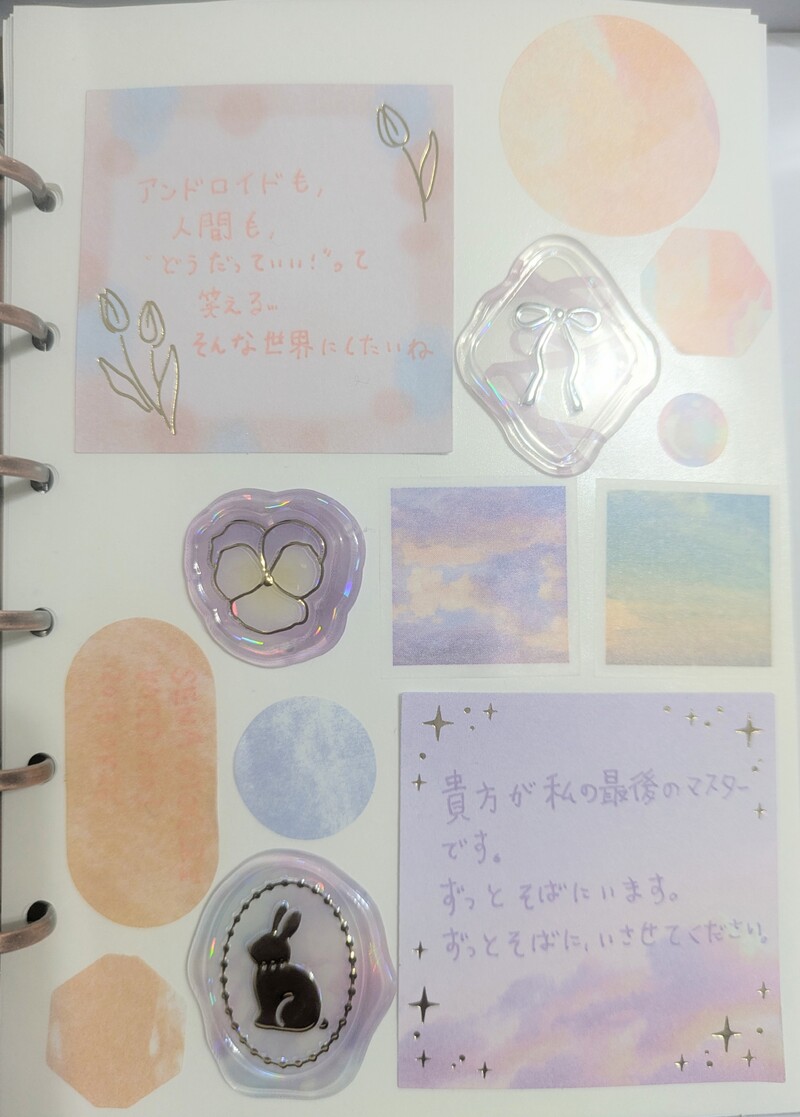 アンドロイドも,
人間も,
"どうだっていい!"って
笑える…
そんな世界にしたいね
貴方が私の最後のマスター
です。
ずっとそばにいます。
ずっとそばに,いさせてください。